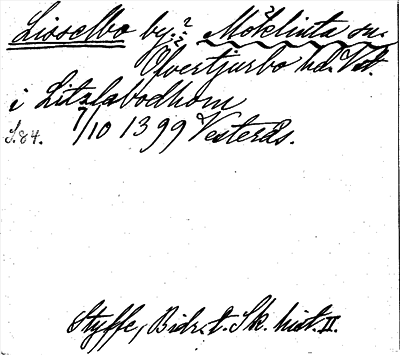 Lisselbo by. ? Möklinta sn.
Övertjurbo hd. Vstl.
i Litzlabodhom
7/10 1399 Vesterås.
S. 84.
Styffe, Bidr. t. Sk. hist. II.